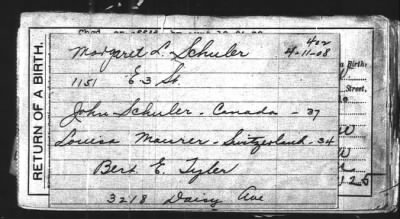 RETURN OF A BIRTH.
402
Margaret L. Schuler 4-11-08
1151 E 3 St.
John Schuler - Canada - 37
Louisa Maurer - Switzerland - 34
Bert E. Tyler
3218 Daisy Ave
Birth:
Street,